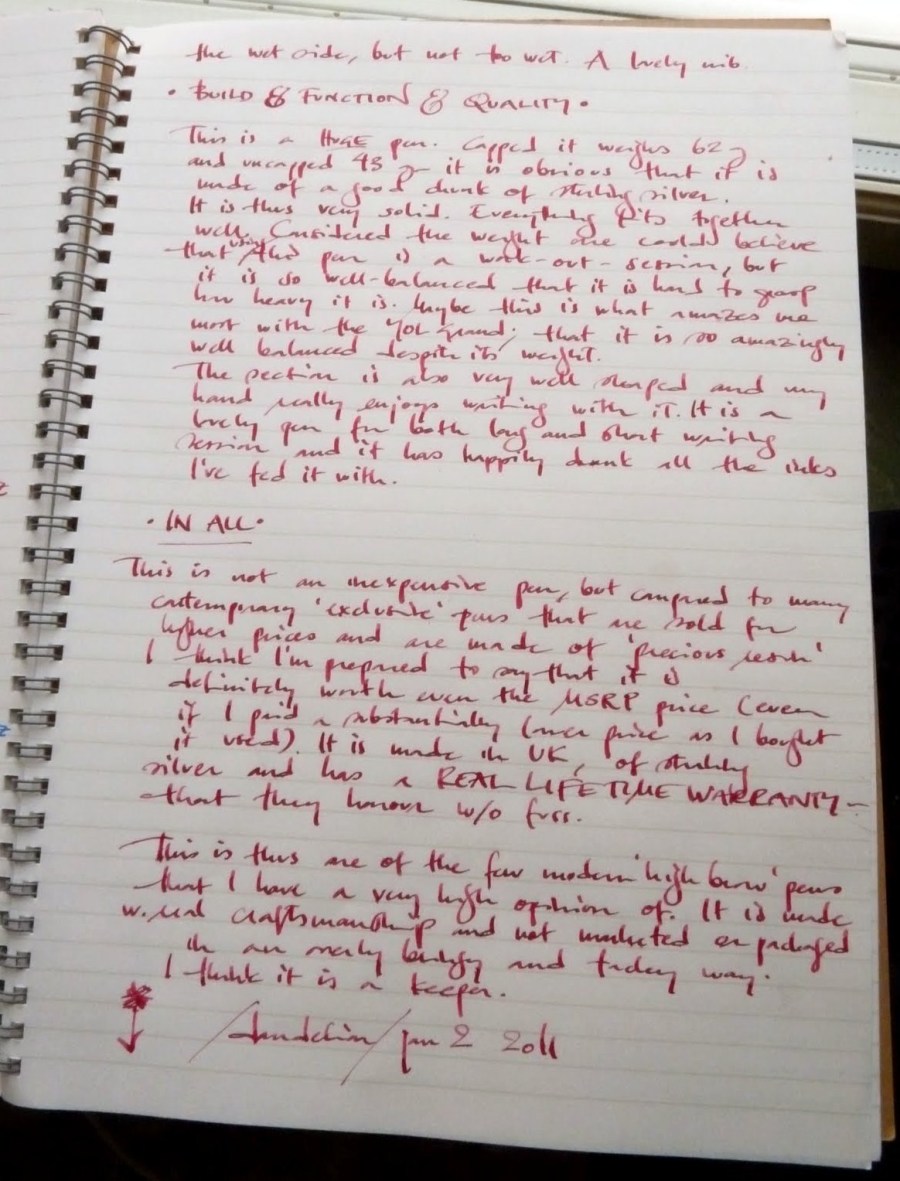 the wet side, but not too wet. A lovely nib.
• BUILD & FUNCTION & QUALITY •
This is a HUGE pen. Capped it weighs 62 g
and uncapped 43 g – it is obvious that it is
made of a good chunk of sterling silver.
It is thus very solid. Everything fits together
well. Considered the weight one could believe
that using this pen is a work-out-session, but
it is so well-balanced that it is hard to grasp
how heavy it is. Maybe this is what amazes me
most with the YOL Grand; that it is so amazingly
well balanced despite its weight.
The section is also very well shaped and my
hand really enjoys writing with it. It is a
lovely pen for both long and short writing
session and it has happily drunk all the inks
I've fed it with.
• IN ALL •
This is not an inexpensive pen, but compared to many
contemporary 'exclusive' pens that are sold for
higher prices and are made of 'precious resin'
I think I'm prepared to say that it is
definitely worth even the MSRP price (even
if I paid a substantially lower price as I bought
it used). It is made in UK, of sterling
silver and has a REAL LIFE TIME WARRANTY –
that they honour w/o fuss.
This is thus one of the few modern 'high brow' pens
that I have a very high opinion of. It is made
w. real craftsmanship and not marketed or packaged
in an overly and way.
I think it is a keeper.
/dandelion/ jan 2 2011